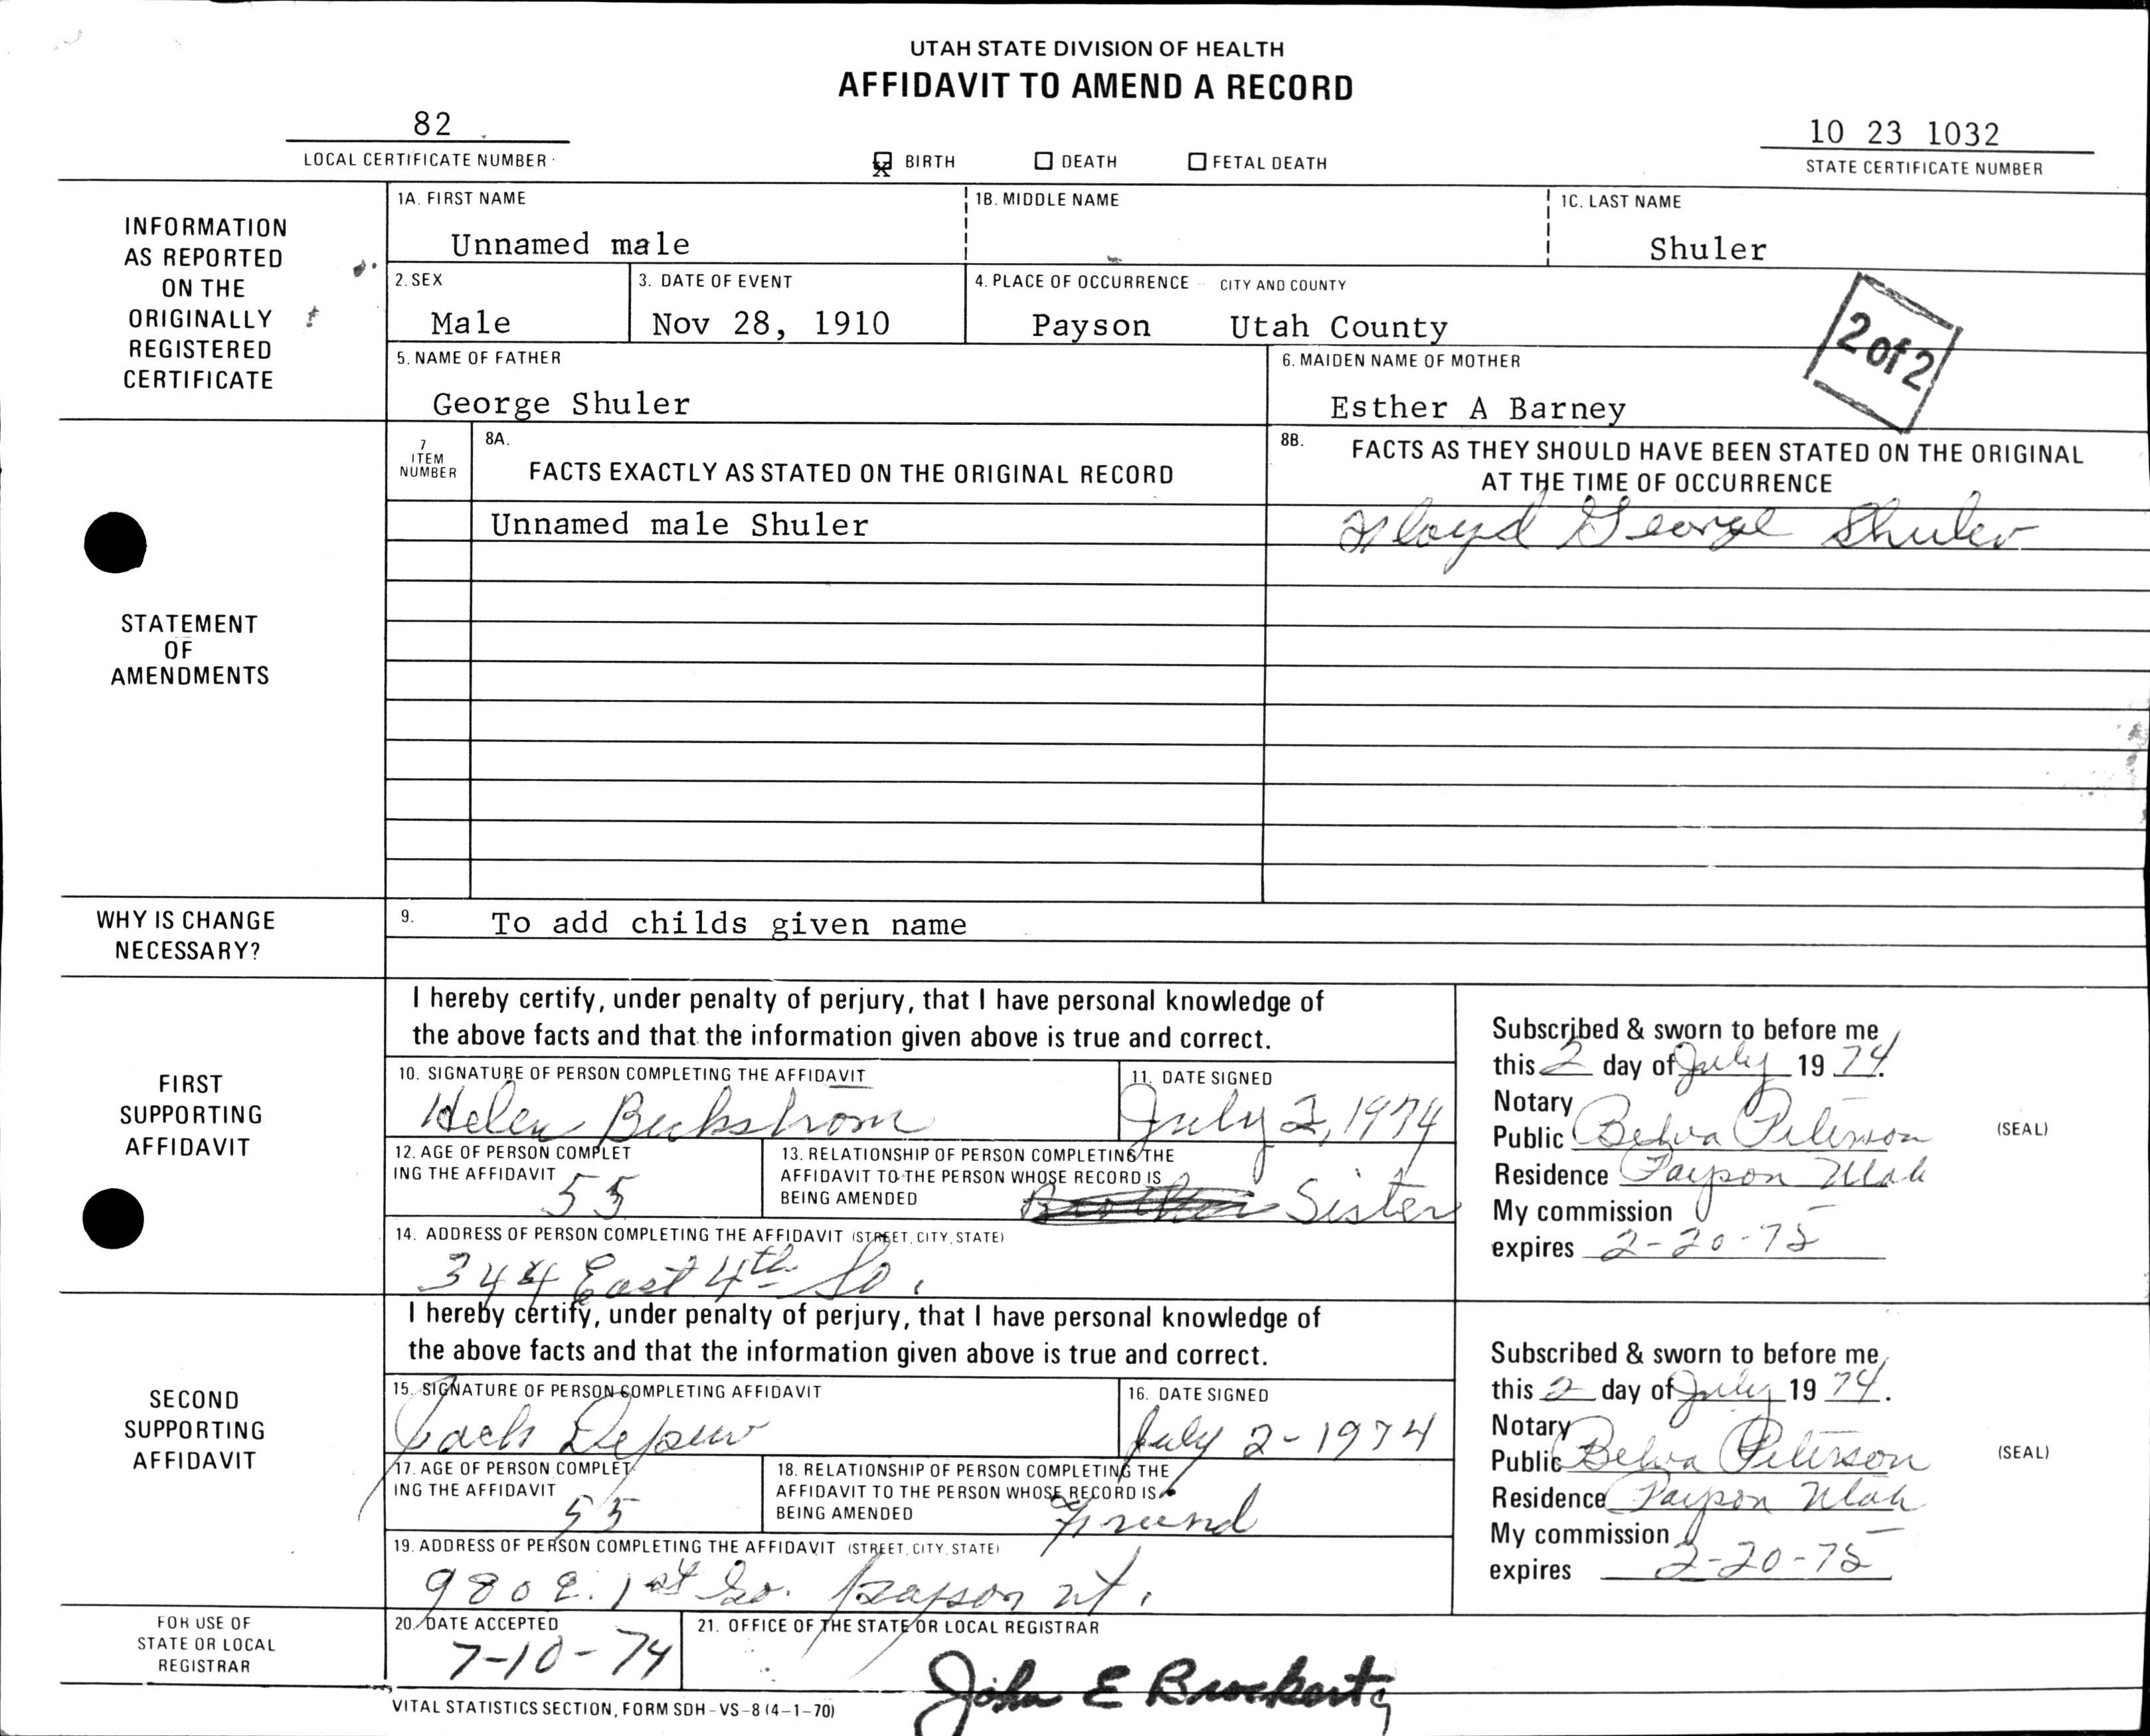 UTAH STATE DIVISION OF HEALTH
AFFIDAVIT TO AMEND A RECORD
82
LOCAL CERTIFICATE NUMBER
X BIRTH DEATH FETAL DEATH
10 23 1032
STATE CERTIFICATE NUMBER
INFORMATION
AS REPORTED
ON THE
ORIGINALLY
REGISTERED
CERTIFICATE
1A. FIRST NAME
Unnamed male
1B. MIDDLE NAME
1C. LAST NAME
Shuler
2. SEX
Male
3. DATE OF EVENT
Nov 28, 1910
4. PLACE OF OCCURRENCE CITY AND COUNTY
Payson Utah County
2 of 2
5. NAME OF FATHER
George Shuler
6. MAIDEN NAME OF MOTHER
Esther A Barney
STATEMENT
OF
AMENDMENTS
7
ITEM
NUMBER
8A.
FACTS EXACTLY AS STATED ON THE ORIGINAL RECORD
8B. FACTS AS THEY SHOULD HAVE BEEN STATED ON THE ORIGINAL
AT THE TIME OF OCCURRENCE
Unnamed male Shuler
George Shuler
WHY IS CHANGE
NECESSARY?
9. To add childs given name
FIRST
SUPPORTING
AFFIDAVIT
I hereby certify, under penalty of perjury, that I have personal knowledge of
the above facts and that the information given above is true and correct.
10. SIGNATURE OF PERSON COMPLETING THE AFFIDAVIT
Helen Beckstrom
11. DATE SIGNED
July 2, 1974
12. AGE OF PERSON COMPLET
ING THE AFFIDAVIT 55
13. RELATIONSHIP OF PERSON COMPLETING THE
AFFIDAVIT TO THE PERSON WHOSE RECORD IS
BEING AMENDED Sister
14. ADDRESS OF PERSON COMPLETING THE AFFIDAVIT (STREET, CITY, STATE)
344 East 4th So.
Subscribed & sworn to before me
this 2 day of July 19 74.
Notary
Public Belva Peterson (SEAL)
Residence Payson Utah
My commission
expires 2-20-75
SECOND
SUPPORTING
AFFIDAVIT
I hereby certify, under penalty of perjury, that I have personal knowledge of
the above facts and that the information given above is true and correct.
15. SIGNATURE OF PERSON COMPLETING AFFIDAVIT
Jack Depew
16. DATE SIGNED
July 2-1974
17. AGE OF PERSON COMPLET
ING THE AFFIDAVIT 55
18. RELATIONSHIP OF PERSON COMPLETING THE
AFFIDAVIT TO THE PERSON WHOSE RECORD IS
BEING AMENDED Friend
19. ADDRESS OF PERSON COMPLETING THE AFFIDAVIT (STREET, CITY, STATE)
980 E. 1st So. Payson Ut.
Subscribed & sworn to before me
this 2 day of July 19 74.
Notary
Public Belva Peterson (SEAL)
Residence Payson Utah
My commission
expires 2-20-75
FOR USE OF
STATE OR LOCAL
REGISTRAR
20. DATE ACCEPTED
7-10-74
21. OFFICE OF THE STATE OR LOCAL REGISTRAR
John E Brockert
VITAL STATISTICS SECTION, FORM SDH-VS-8 (4-1-70)